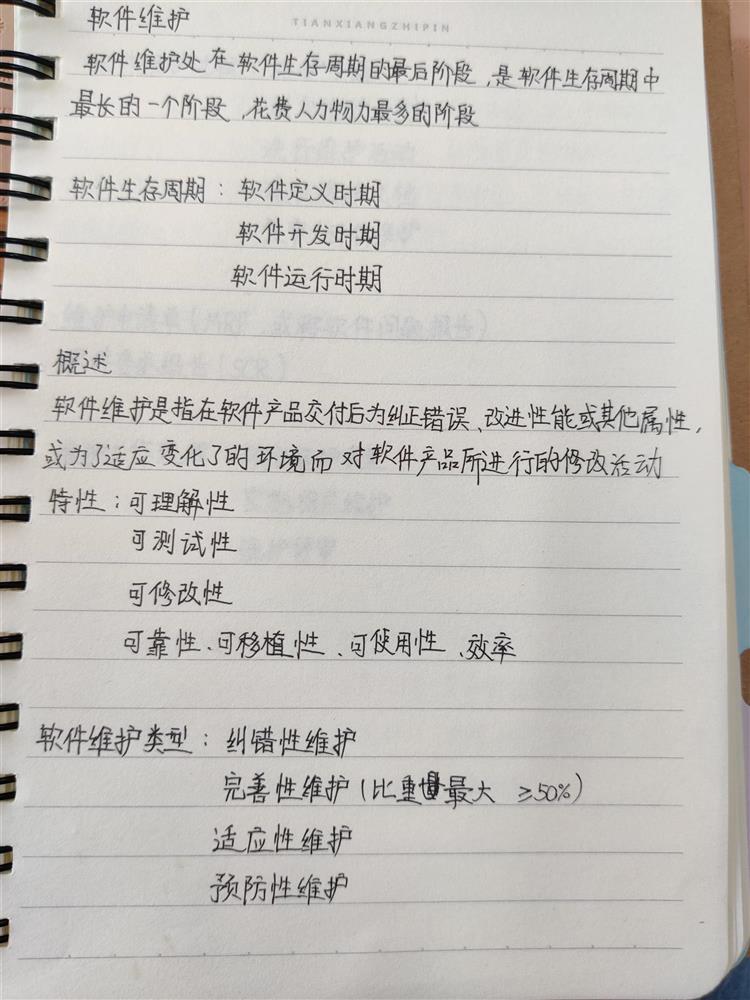 TIANXIANGZHIPIN
软件维护
软件维护处在软件生存周期的最后阶段,是软件生存周期中
最长的一个阶段,花费人力物力最多的阶段
软件生存周期:软件定义时期
软件开发时期
软件运行时期
概述
软件维护是指在软件产品交付后为纠正错误、改进性能或其他属性,
或为了适应变化了的环境而对软件产品所进行的修改活动
特性:可理解性
可测试性
可修改性
可靠性、可移植性、可使用性、效率
软件维护类型:纠错性维护
完善性维护(比重最大 ≥50%)
适应性维护
预防性维护